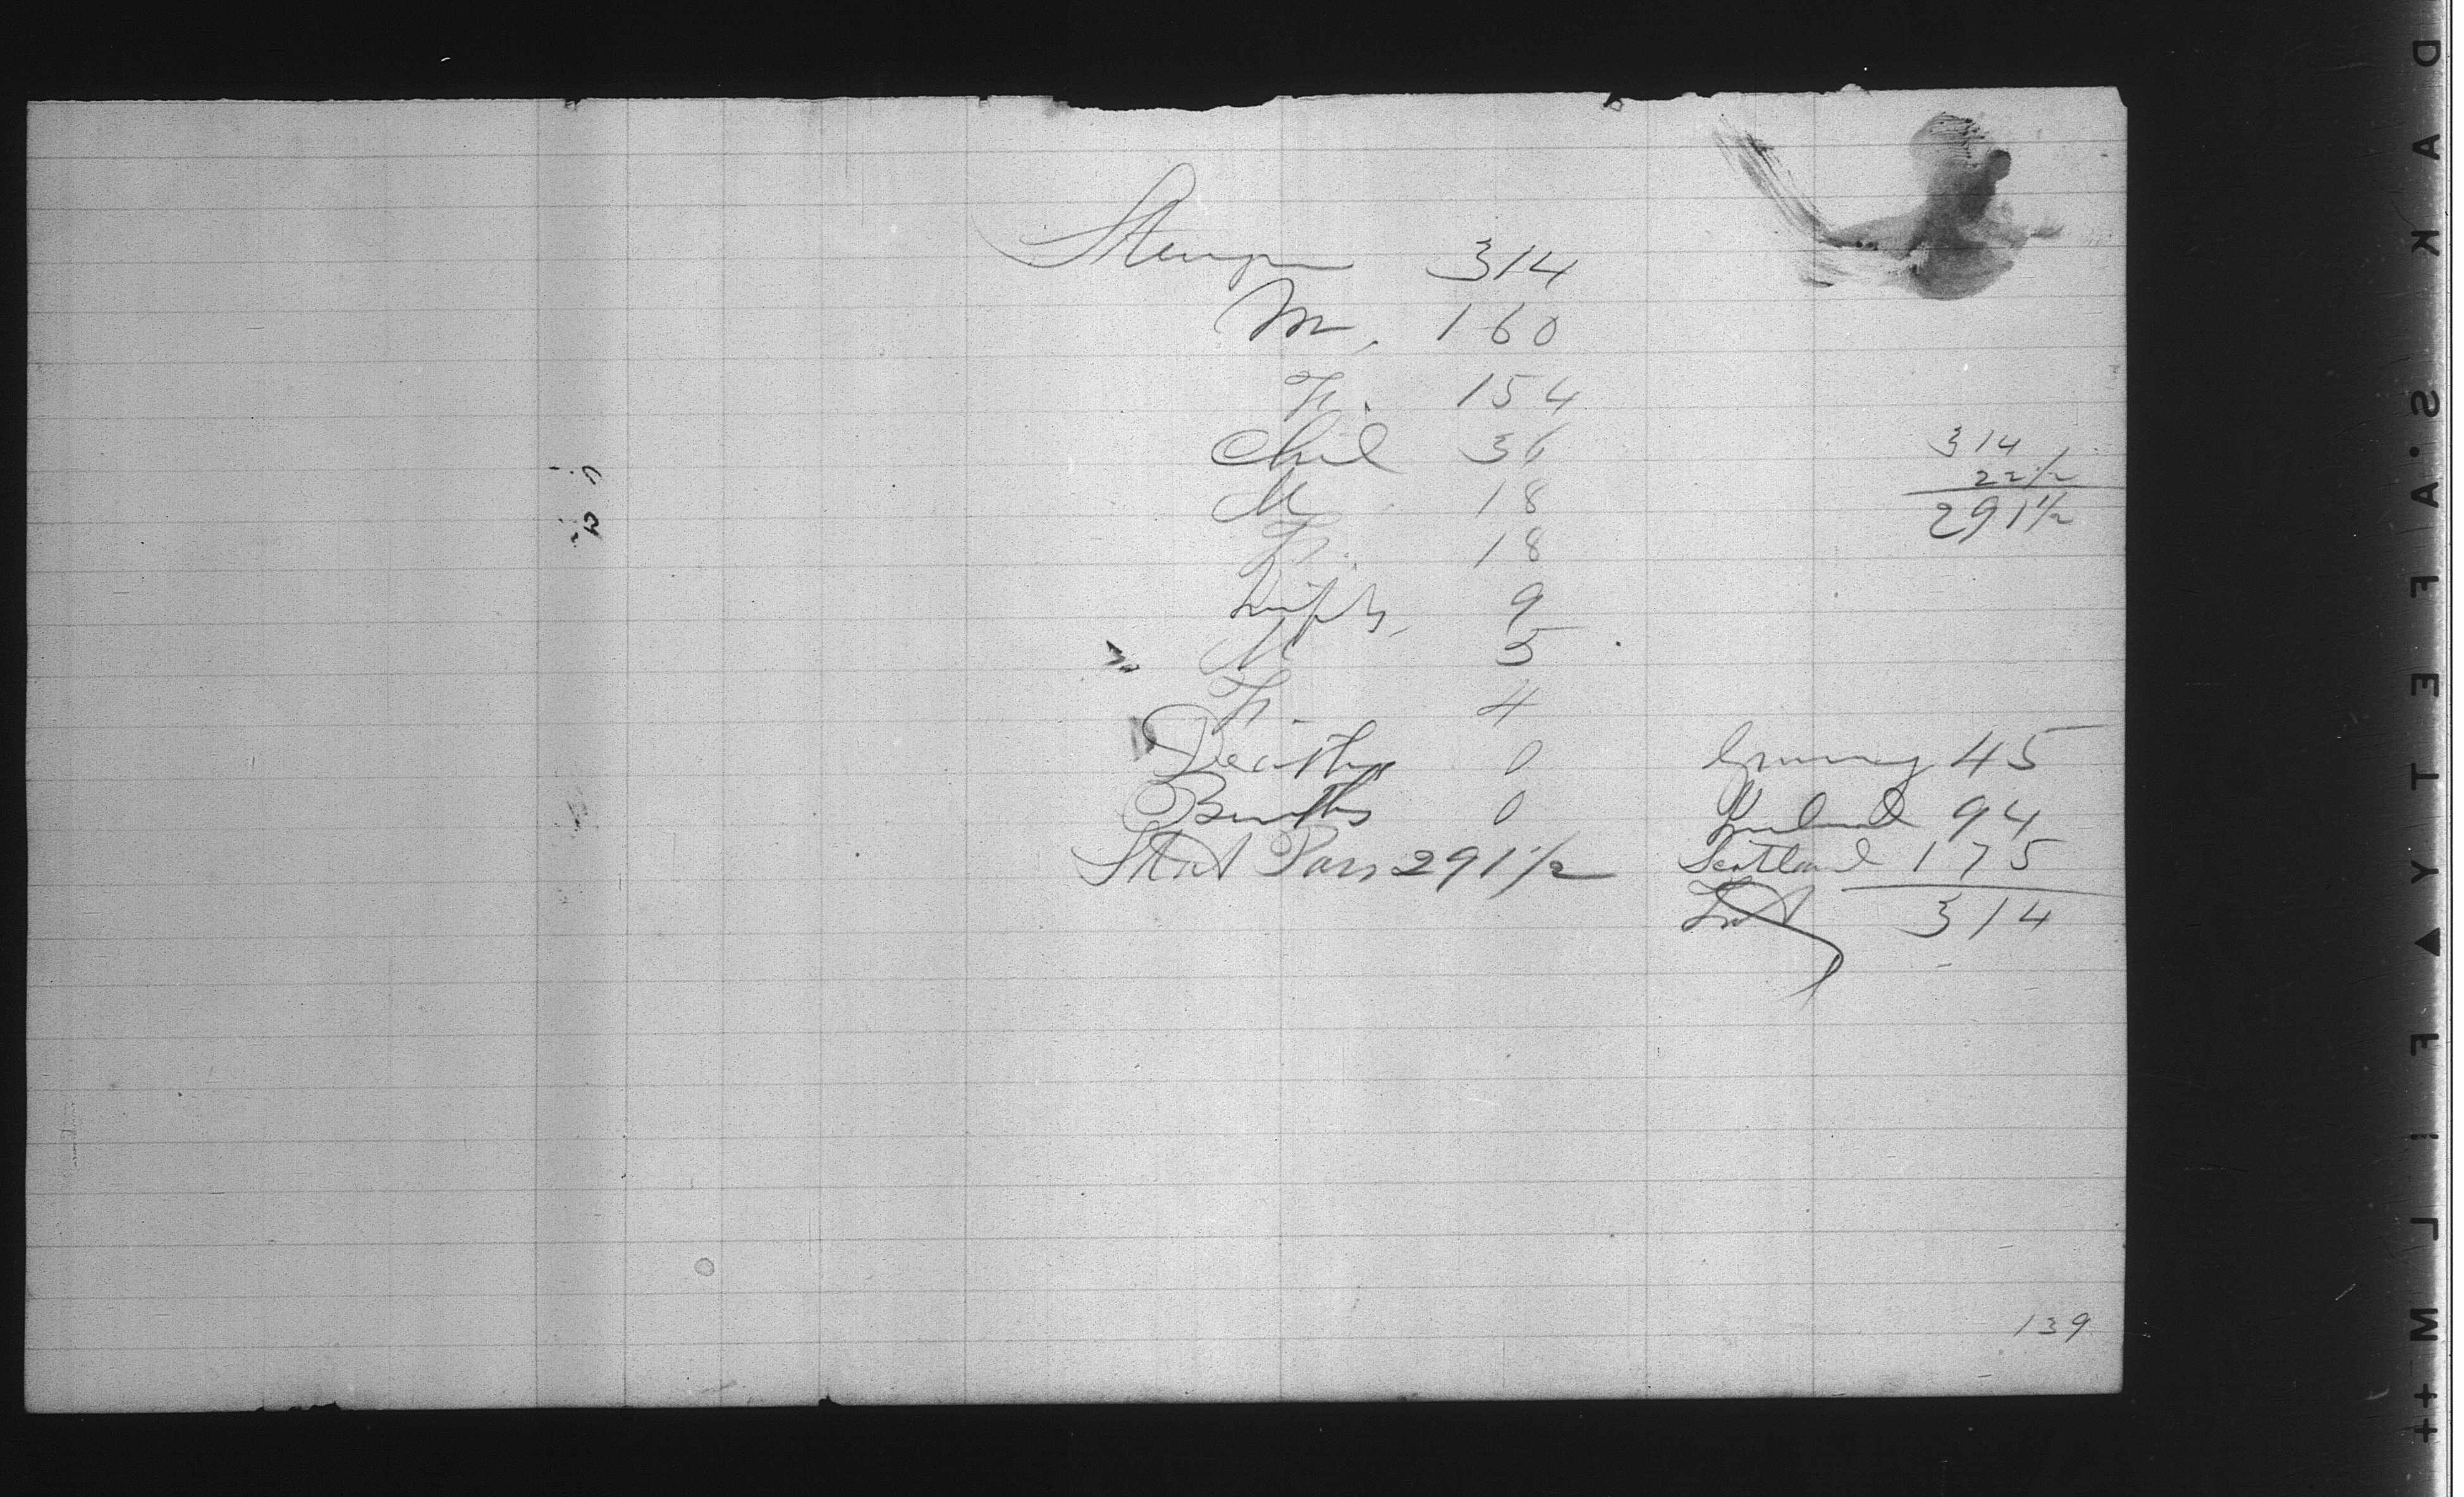 Steerage 314
M. 160
F. 154
Chil 36
M 18
F. 18
Infts, 9
M 5
F. 4
Deaths 0
Births 0
Stat Pass 291 1/2
314
22 1/2
291 1/2
Germany 45
Ireland 94
Scotland 175
Tot 314
139
SAFETY FILM
KODA